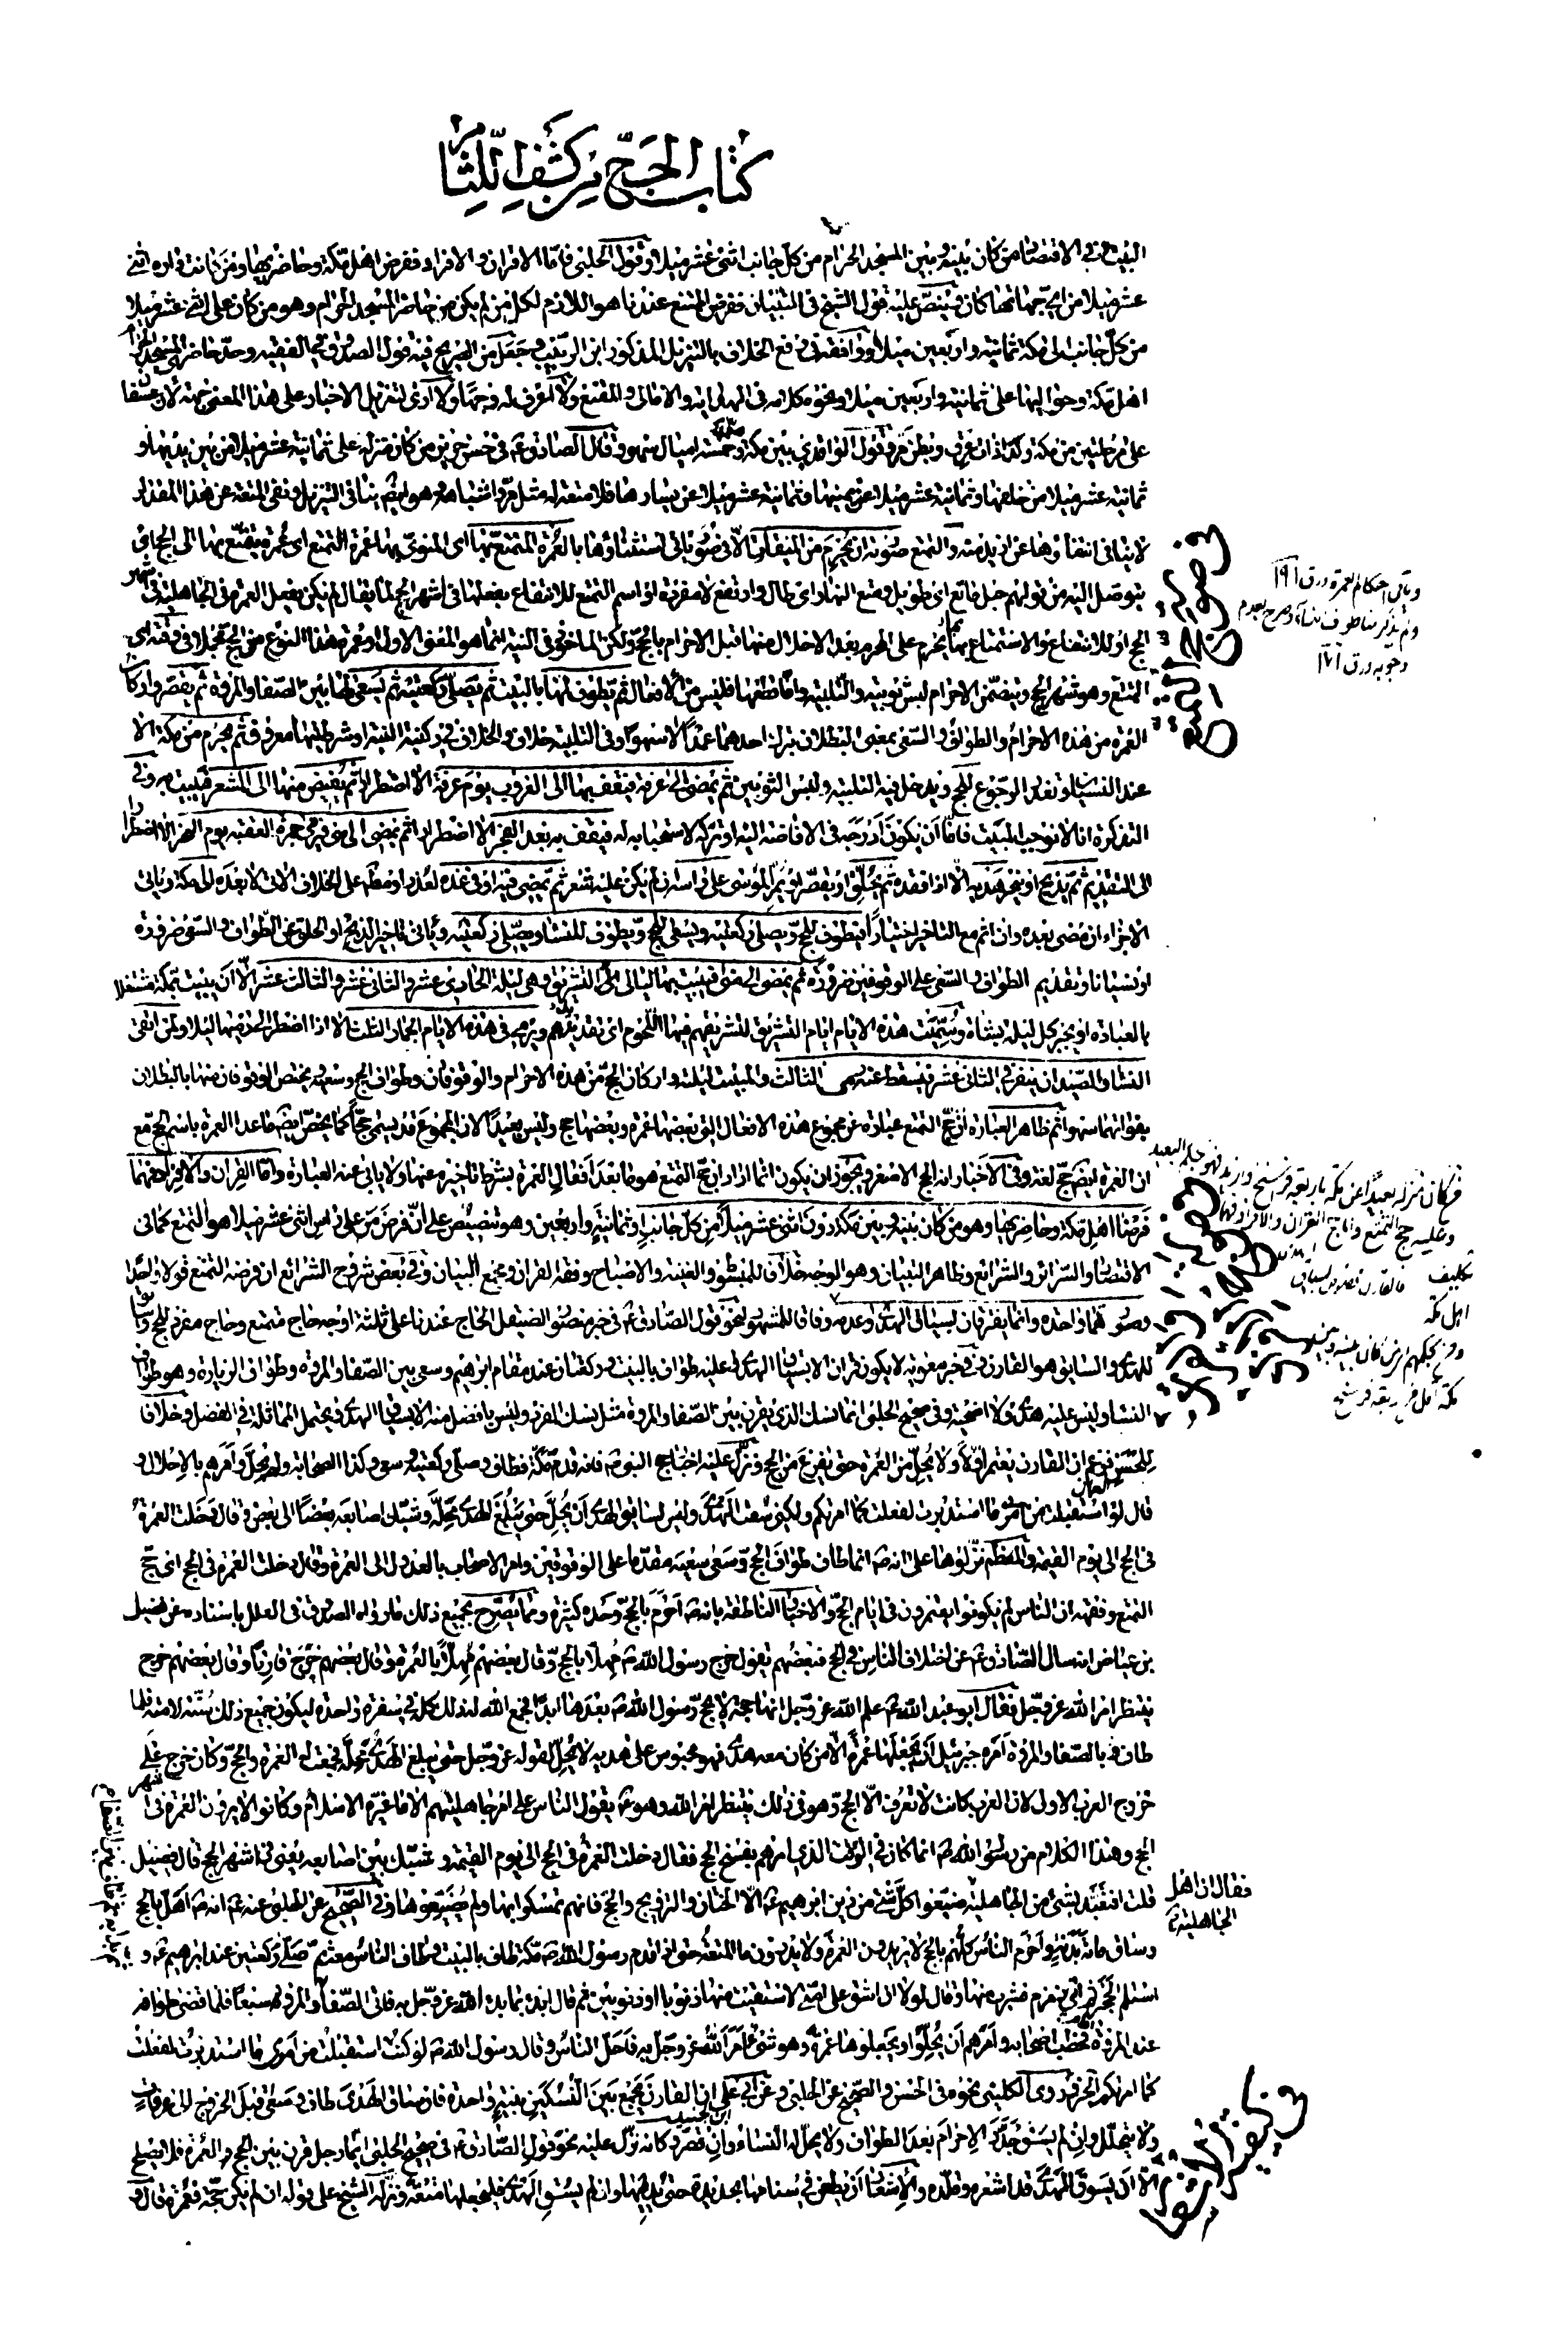 كتاب الحج من كشف اللثام
البيت وفي الاقتصاد من كان بينه وبين المسجد الحرام من كل جانب اثنى عشر ميلا وقول الحلبي فاما الاقران والافراد ففرض اهل مكة وحاضريها ومن كانت داره اثنى
عشر ميلا من اي جهاتها كان وينص عليه قول الشيخ في التبيان ففرض التمتع عندنا هو اللازم لكل من لم يكن من حاضري المسجد الحرام وهو من كان على اثنى عشر ميلا
من كل جانب الى مكة ثمانية واربعين ميلا ووافقه في رفع الخلاف بالتنزيل المذكور ابن الربيب وجعل من الصريح فيه قول الصدوق في الفقيه وحد حاضري المسجد الحرام
اهل مكة وحواليها على ثمانية واربعين ميلا ونحوه كلامه في الهداية والامالي والمقنع ولا اعرف له وجها ولا ارى لتنزيل الاخبار على هذا المعنى جهة لان عسفان
على مرحلتين من مكة وكذا ذات عرق وبطن مر وقول الواقدي بين مكة خمسة اميال سهو وقال الصادق ع في خبر حريز من كان منزله على ثمانية عشر ميلا من بين يديها و
ثمانية عشر ميلا من خلفها وثمانية عشر ميلا عن يمينها وثمانية عشر ميلا عن يسارها فلا متعة له مثل مر واشباهه وهو ايضا ينافي التنزيل ونفي المتعة عن هذا المقدار
لا ينافي انتفاؤها عن ازيد منه و التمتع صورته ان يحرم من الميقات الا في صور ياتي استثناؤها بالعمرة المتمتع بها اي المنوي بها عمرة التمتع اي عمرة يتمتع بها الى الحج اي
يتوصل اليه من قولهم حبل ماتع اي طويل ومتع النهار اي طال وارتفع لا مفردة او اسم التمتع للانتفاع بفعلها في اشهر الحج لما يقال لم يكن يفعل العمرة في الجاهلية في اشهر
الحج او للانتفاع و الاستمتاع بما يحرم على المحرم بعد الاحلال منها قبل الاحرام بالحج ولكن الماخوذ في النية انما هو المعنى الاول او عمرة هذا النوع من الحج في وقته اي
التمتع وهو اشهر الحج ويتضمن الاحرام لبس ثوبيه والتلبية واما قطعها فليس من الافعال ثم يطوف لها بالبيت ثم يصلي ركعتيه ثم يسعى لها بين الصفا والمروة ثم يقصر واركان
العمرة من هذه الاحرام و الطواف و السعي بمعنى البطلان بترك احدهما عمدا لا سهوا وفي التلبية خلاف والخلاف في ركنية النية او شرطيتها معروف ثم يحرم من مكة الا
عند النسيان وتعذر الرجوع للحج ويدخل فيه التلبية ولبس الثوبين ثم يمضي الى عرفة فيقف بها الى الغروب يوم عرفة الا الاضطرار ثم يفيض منها الى المشعر فيبيت به وفي
التذكرة انا لا نوجب المبيت فاما ان يكون ادرجه في الافاضة اليه او تركه لاستحبابه له فيقف به بعد الفجر الا اضطرارا ثم يمضي الى منى فيرمي جمرة العقبة يوم النحر الا اضطرارا
الى التقديم ثم يذبح او ينحر هديه الا اذا فقده ثم يحلق او يقصر او يمر الموسى على راسه ان لم يكن عليه شعر ثم يمضي فيه او في غده لعذر او مطلقا على الخلاف الاتي الا بعده الى مكة وياتي
الاجزاء ان مضى بعده وان اثم مع التاخير اختيارا فيطوف للحج ويصلي ركعتيه ويسعى للحج ويطوف للنساء ويصلي ركعتيه وياتي تاخير الذبح او الحلق عن الطواف و السعي ضرورة
او نسيانا وتقديم الطواف و السعي على الوقوفين ضرورة ثم يمضي الى منى فيبيت بها ليالي التشريق وهي ليلة الحادي عشر والثاني عشر والثالث عشر الا ان يبيت بمكة مشتغلا
بالعبادة او يجبر كل ليلة بشاة وسميت هذه الايام ايام التشريق لتشريقهم فيها اللحوم اي تقديدهم ويرمي في هذه الايام الجمار الثلث الا اذا اضطر الى رميها ليلا ولمن اتقى
النساء والصيد ان ينفر في الثاني عشر فيسقط عنه رمي الثالث و المبيت ليلته واركان الحج من هذه الاحرام والوقوفان وطواف الحج وسعيه ويختص الوقوفان منها بالبطلان
بفواتهما سهوا ثم ظاهر العبارة ان حج التمتع عبارة عن مجموع هذه الافعال التي بعضها عمرة وبعضها حج وليس بعيدا لان المجموع قد يسمى حجا كما يخص ايضا ما عدا العمرة باسم الحج مع
ان العمرة ايضا حج لغة وفي الاخبار انه الحج الاصغر ويجوز ان يكون انما اراد ان حج التمتع هو ما بعد افعال العمرة بشرط تاخيره عنها ولا ياباى عنه العبارة واما القران والافراد فهما
فرضا اهل مكة وحاضريها وهو من كان بينه وبين مكة دون اثنى عشر ميلا من كل جانب وثمانية واربعين وهو تنصيص على ان فرض من على راس اثنى عشر ميلا هو التمتع كما في
الاقتصاد و السرائر و الشرائع وظاهر التبيان وهو الوجه خلافا للمبسوط و الغنية و الاصباح وفقه القران ومجمع البيان وفي بعض شروح الشرائع ان فرضه التمتع قولا واحدا
وصورتهما واحدة وانما يفترقان بسياق الهدي وعدمه وفاقا للمشهور لنحو قول الصادق ع في خبر منصور الصيقل الحاج عندنا على ثلثة اوجه حاج متمتع وحاج مفرد للحج وسائق
للهدي والسائق هو القارن وفي خبر معوية لا يكون قران الا بسياق الهدي عليه طواف بالبيت وركعتان عند مقام ابرهيم وسعى بين الصفا والمروة وطواف الزيارة وهو طواف
النساء وليس عليه هدي ولا اضحية وفي صحيح الحلبي انما نسك الذي يقرن بين الصفا والمروة مثل نسك المفرد وليس بافضل منه الا بسياق الهدي ويحتمل المماثلة في الفضل وخلافا
للحسن فزعم ان القارن يعتمر اولا ولا يحل من العمرة حتى يفرغ من الحج ونزل عليه اخبار حج النبي ص فانه قدم مكة فطاف وصلى ركعتيه وسعى وكذا الصحابة ولم يحل وامرهم بالاحلال و
قال لو استقبلت من امري ما استدبرت لفعلت كما امرتكم ولكني سقت الهدي وليس لسائق الهدي ان يحل حتى يبلغ الهدي محله وشبك اصابعه بعضها الى بعض وقال دخلت العمرة
في الحج الى يوم القيمة والمعظم نزلوها على انه ص انما طاف طواف الحج وسعى سعيه مقدما على الوقوفين وامر الاصحاب بالعدول الى العمرة وقال دخلت العمرة في الحج اي حج
التمتع وفقهه ان الناس لم يكونوا يعتمرون في ايام الحج والاخبار الناطقة بانه ص احرم بالحج وحده كثيرة ومما يصرح بجميع ذلك ما رواه الصدوق في العلل باسناده عن فضيل
بن عياض انه سال الصادق ع عن اختلاف الناس في الحج فبعضهم يقول خرج رسول الله ص مهلا بالحج وقال بعضهم مهلا بالعمرة وقال بعضهم خرج قارنا وقال بعضهم خرج
ينتظر امر الله عز وجل فقال ابو عبد الله ع علم الله عز وجل انها حجة لا يحج رسول الله ص بعدها ابدا فجمع الله له ذلك كله في سفرة واحدة ليكون جميع ذلك سنة لامته فلما
طاف بالصفا والمروة امره جبرئيل ان يجعلها عمرة الا من كان معه هدي فهو محبوس على هديه لا يحل لقوله عز وجل حتى يبلغ الهدي محله فجمعت له العمرة والحج وكان خرج على
خروج العرب الاول لان العرب كانت لا تعرف الا الحج وهو في ذلك ينتظر امر الله وهو ع يقول الناس على امر جاهليتهم الا ما غيره الاسلام وكانوا لا يرون العمرة في اشهر
الحج وهذا الكلام من رسول الله ص انما كان في الوقت الذي امرهم بفسخ الحج فقال دخلت العمرة في الحج الى يوم القيمة و شبك بين اصابعه يعني في اشهر الحج قال فضيل
قلت افيعتد بشئ من الجاهلية ضيعوا كل شئ من دين ابرهيم ع الا الختان والتزويج والحج فانهم تمسكوا بها ولم يضيعوها وفي الصحيح عن الحلبي عنه ع انه ص اهل بالحج
فقال ان اهل
الجاهلية
وساق مائة بدنة واحرم الناس كلهم بالحج لا يريدون العمرة ولا يدرون ما المتعة حتى اذا قدم رسول الله ص مكة طاف بالبيت وطاف الناس معه ثم صلى ركعتين عند مقام ابرهيم ع و
استلم الحجر ثم اتى زمزم فشرب منها وقال لولا ان اشق على امتي لاستقيت منها ذنوبا او ذنوبين ثم قال ابدؤا بما بدء الله عز وجل به فاتى الصفا ثم طاف بين الصفا والمروة سبعا فلما قضى طوافه
عند المروة قام فخطب اصحابه وامرهم ان يحلوا ويجعلوها عمرة وهو شئ امر الله عز وجل به فاحل الناس وقال رسول الله ص لو كنت استقبلت من امري ما استدبرت لفعلت
كما امرتكم الخبر وروى الكليني نحوه في الحسن و الصحيح عن الحلبي وعن ابي علي ان القارن يجمع بين النسكين بنية واحدة فان ساق الهدي طاف وسعى قبل الخروج الى عرفات
ولا يتحلل وان لم يسق جدد الاحرام بعد الطواف ولا يحل له النساء وان قصر وكانه نزل عليه نحو قول الصادق ع في صحيح الحلبي ايما رجل قرن بين الحج والعمرة فلا يصلح
الا ان يسوق الهدي قد اشعره وقلده والاشعار ان يطعن في سنامها بحديدة حتى يدميها وان لم يسق الهدي فليجعلها متعة ونزله الشيخ على قوله ان لم يكن حجة فعمرة وقال
وياتي احكام العمرة ورق ١٩١
ولم يذكر هنا طواف النساء وصرح بعدم
وجوبه ورق ١٧١
فمن كان منزله بعيدا عن مكة باربعة فرسخ وازيد فهو حكم البعيد
وعليه حج التمتع واما حج القران والافراد فهما
تكليف
اهل مكة